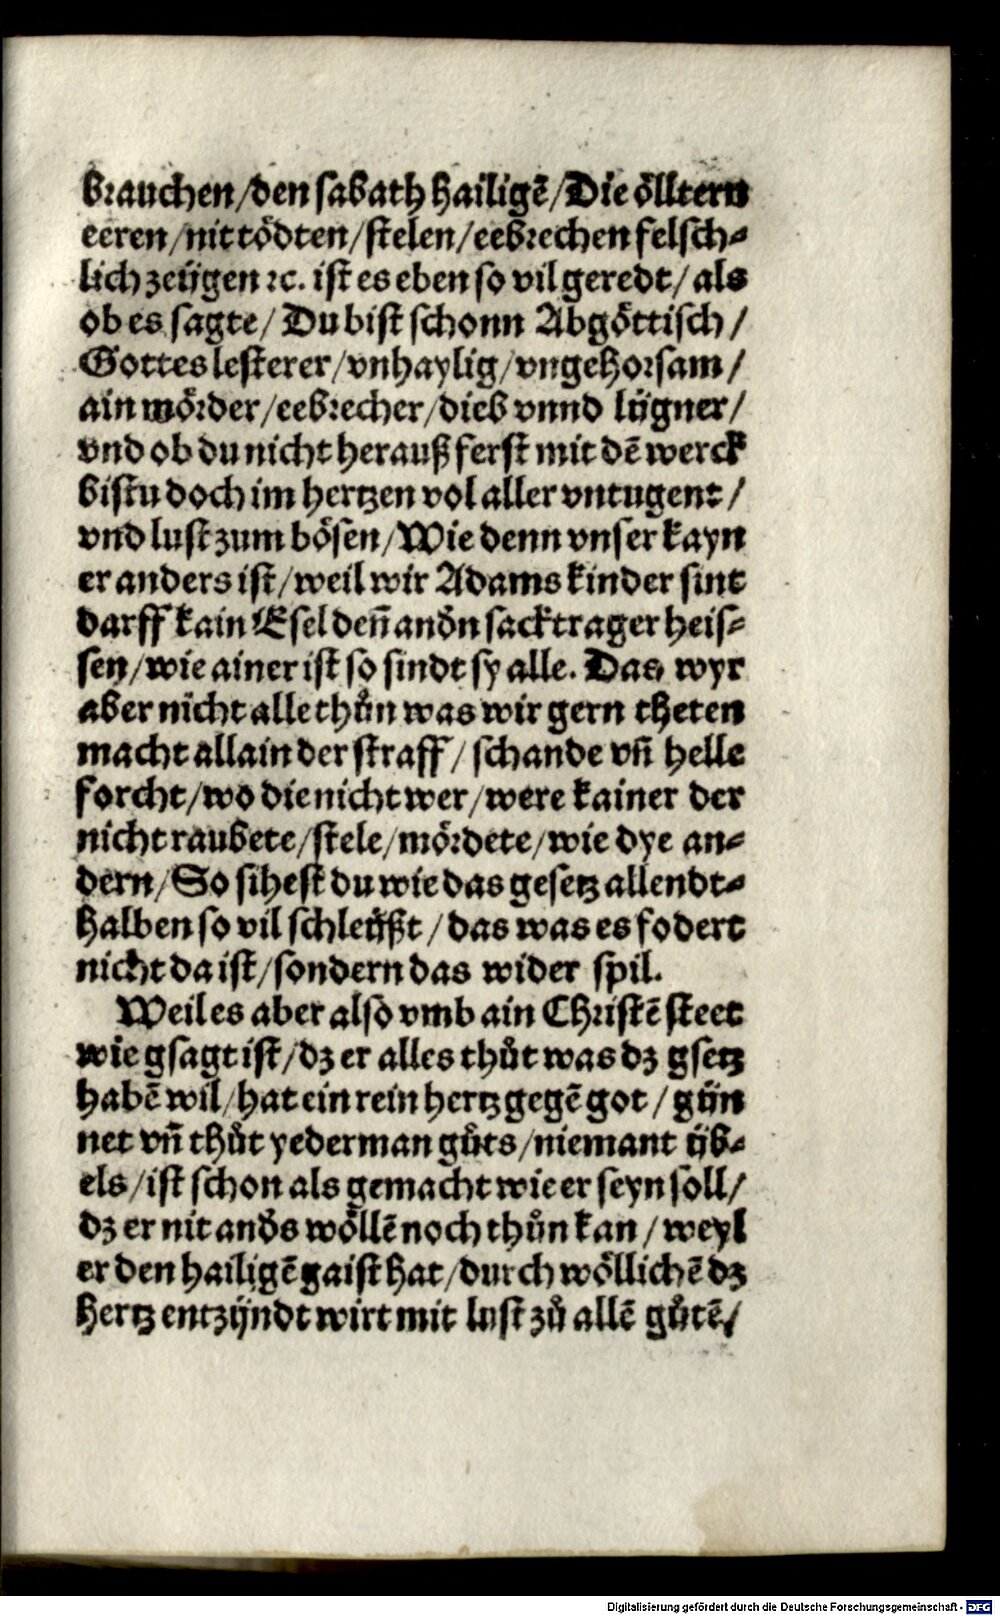 brauchen/den sabath hailigē/Die oͤlltern
eeren/nit toͤdten/stelen/eebrechen felsch⸗
lich zeügen ⁊c. ist es eben so vil geredt/als
ob es sagte/ Du bist schonn Abgoͤttisch/
Gottes lesterer/vnhaylig/vngehorsam/
ain moͤrder/eebrecher/dieb vnnd lügner/
vnd ob du nicht herauß ferst mit dē werck
bistu doch im hertzen vol aller vntugent/
vnd lust zum boͤsen/Wie denn vnser kayn
er anders ist/weil wir Adams kinder sint
darff kain Esel den̄ andn̄ sacktrager heis⸗
sen/wie ainer ist so sindt sy alle. Das wyr
aber nicht alle thuͦn was wir gern theten
macht allain der straff/ schande vn̄ helle
forcht/wo die nicht wer/were kainer der
nicht raubete/stele/moͤrdete/wie dye an⸗
dern/So sihest du wie das gesetz allendt⸗
halben so vil schleüßt/das was es fodert
nicht da ist/sondern das wider spil.
Weil es aber also vmb ain Christē steet
wie gsagt ist/dz er alles thuͦt was dz gsetz
habē wil/hat ein rein hertz gegē got/ gün
net vn̄ thuͦt yederman guͦts/niemant üb⸗
els/ist schon als gemacht wie er seyn soll/
dz er nit anđs woͤllē noch thuͦn kan/weyl
er den hailigē gaist hat/durch woͤllichē dz
hertz entzündt wirt mit lust zuͦ allē guͦtē/
Digitalisierung gefördert durch die Deutsche Forschungsgemeinschaft - DFG